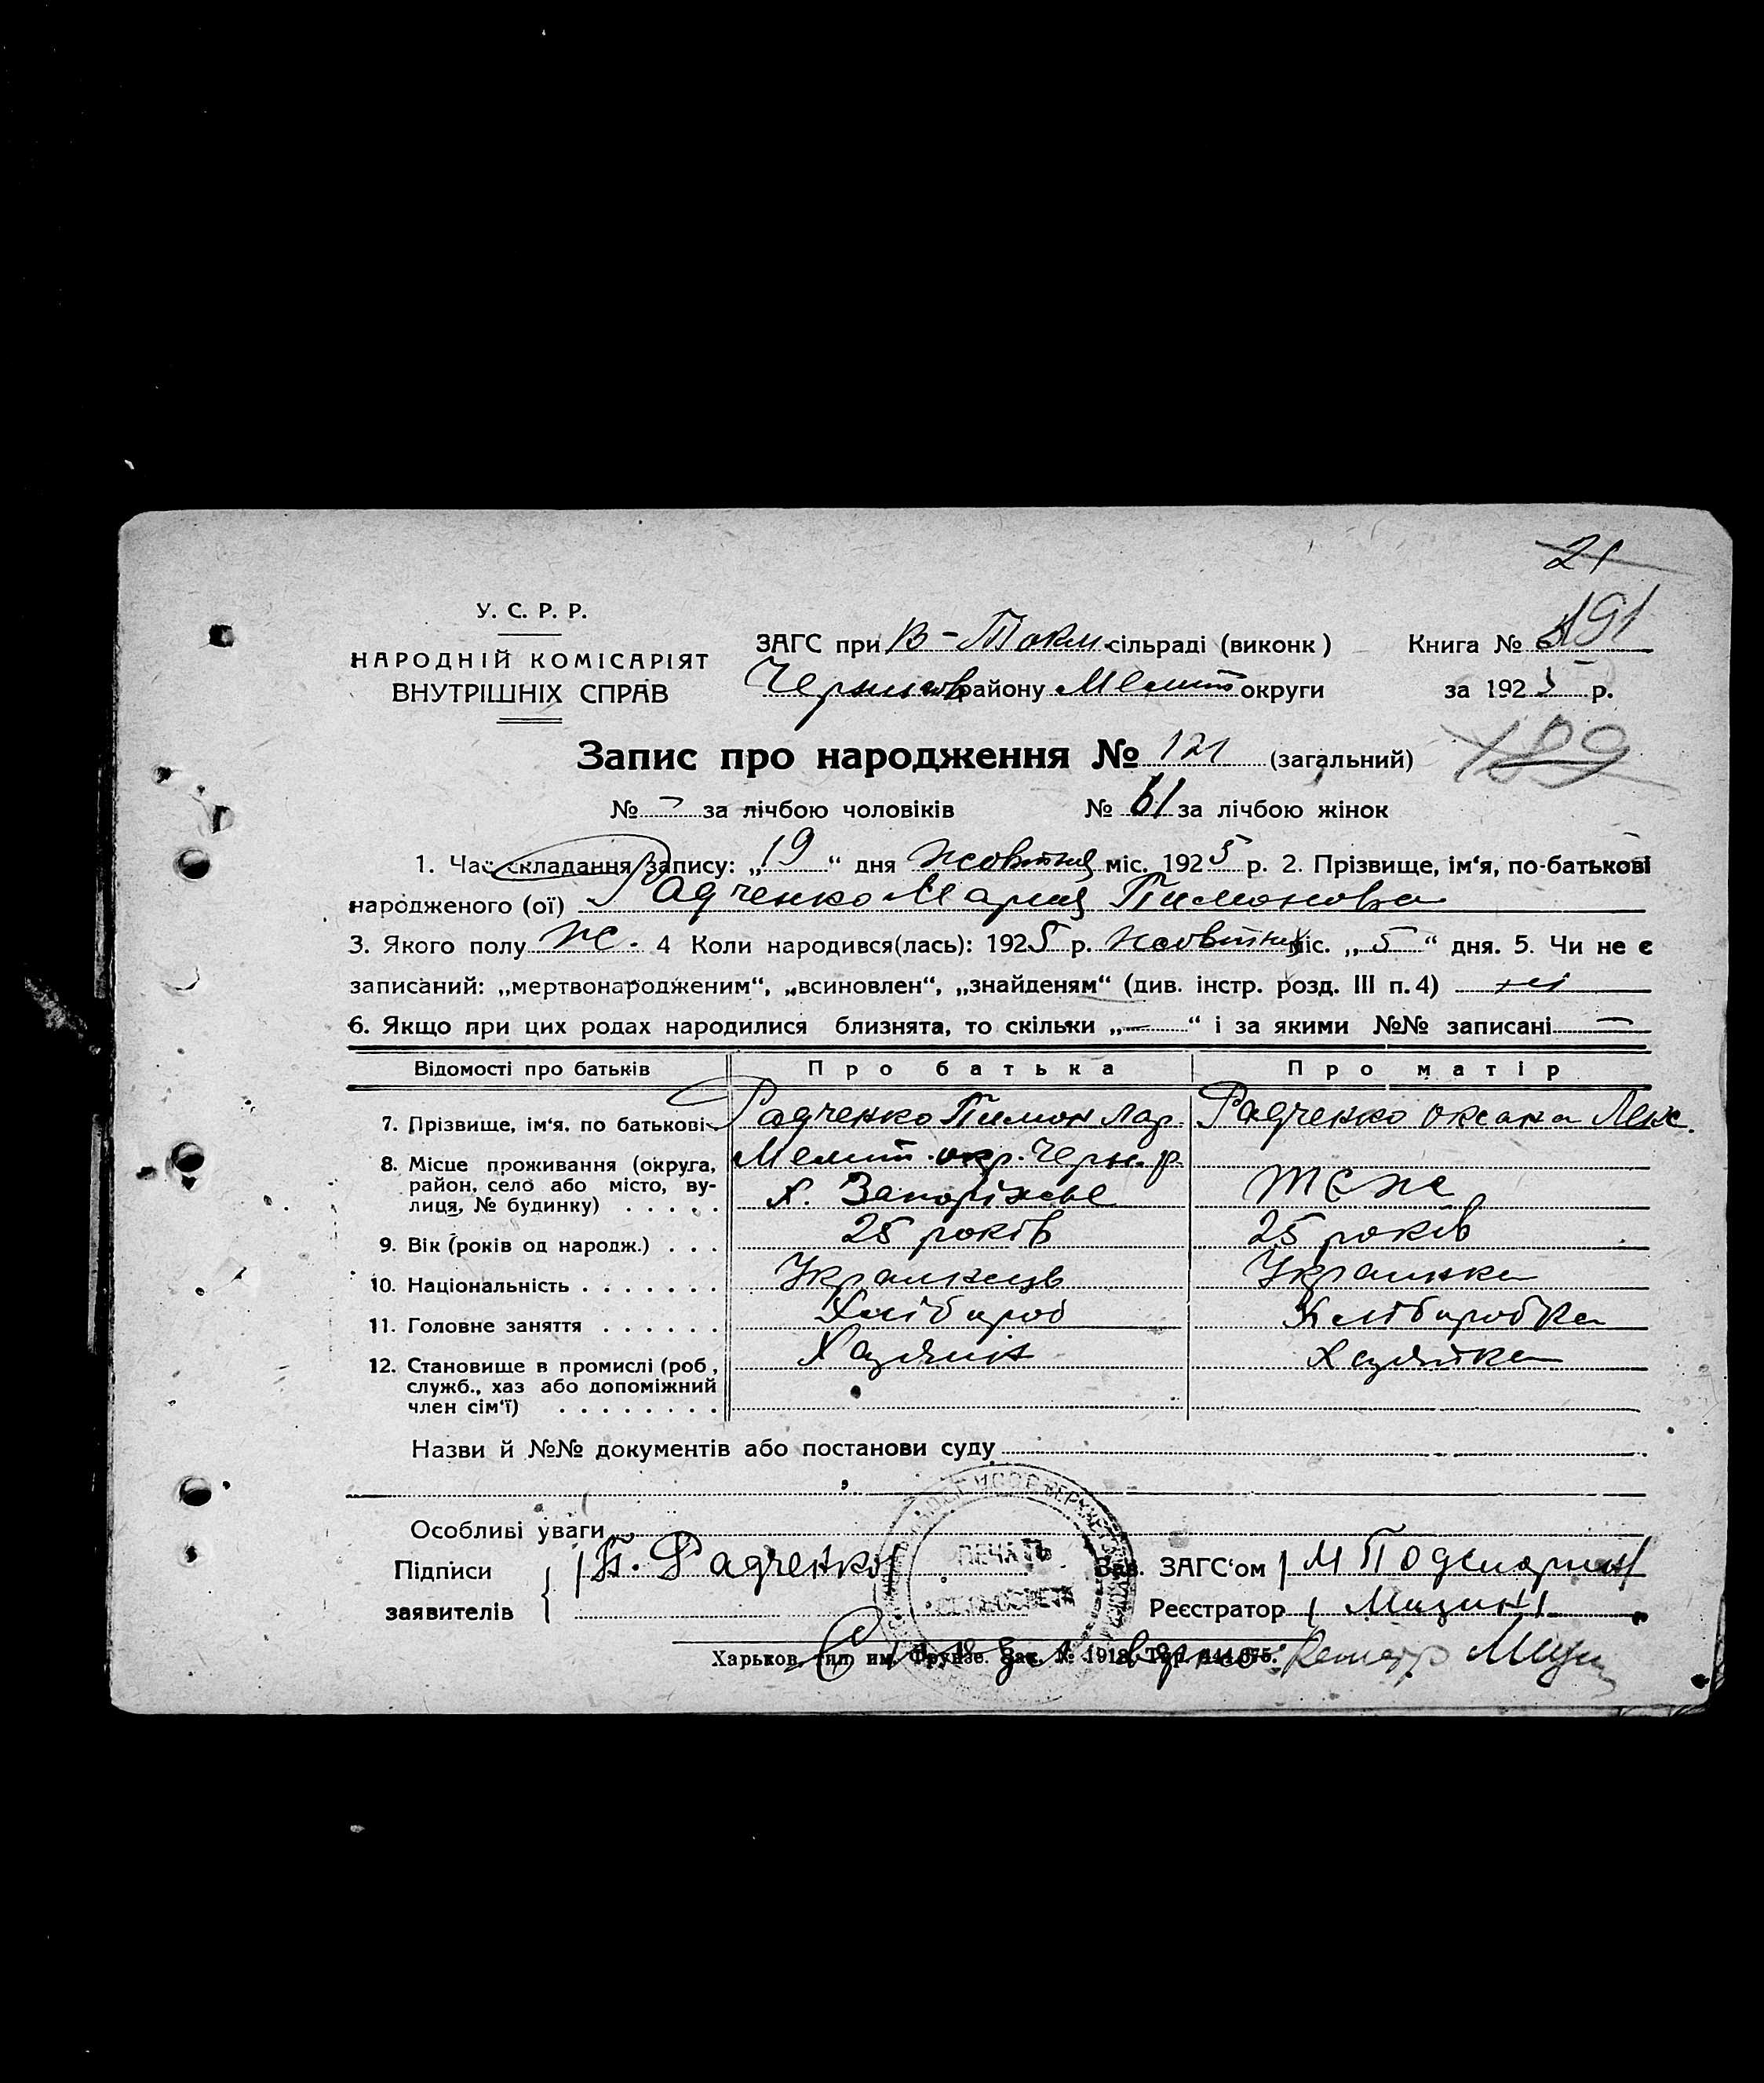 21
У. С. Р. Р.
НАРОДНІЙ КОМІСАРІЯТ
ВНУТРІШНІХ СПРАВ
ЗАГС при В-Токм. сільраді (виконк)
Книга № 191
Черниговрайону Мелит округи
за 1925 р.
Запис про народження № 121 (загальний)
189
№ – за лічбою чоловіків № 61 за лічбою жінок
1. Час складання запису: „19“ дня жовтня міс. 1925 р. 2. Прізвище, ім‘я, по-батькові
народженого (ої) Радченко Мария Пимоновна
3. Якого полу ж. 4 Коли народився(лась): 1925 р. жовтня міс. „5“ дня. 5. Чи не є
записаний: „мертвонародженим“, „всиновлен“, „знайденям“ (див. інстр. розд. III п. 4) ні
6. Якщо при цих родах народилися близнята, то скільки „—“ і за якими №№ записані —
Відомості про батьків Про батька Про матір
7. Прізвище, ім‘я, по батькові Радченко Пимон Лар. Радченко Оксана Лек.
8. Місце проживання (округа, Мелит. окр. Черн. р.
район, село або місто, ву- х. Запоріжье теже
лиця, № будинку) . . . . .
9. Вік (років од народж.) . . . 25 років 25 років
10. Національність . . . . . . . Украинець Украинка
11. Головне заняття . . . . . . Хлібороб Хліборобка
12. Становище в промислі (роб, Хазяин Хазяйка
служб., хаз або допоміжний
член сім‘ї) . . . . . . . .
Назви й №№ документів або постанови суду
Особливі уваги
Підписи П. Радченко
заявителів
ПЕЧАТЬ
СЕЛЬСОВЕТА
Зав. ЗАГС‘ом М
Реєстратор Мизин
Харьков, тип. им. Фрунзе. Зак. № 1918.
верно: